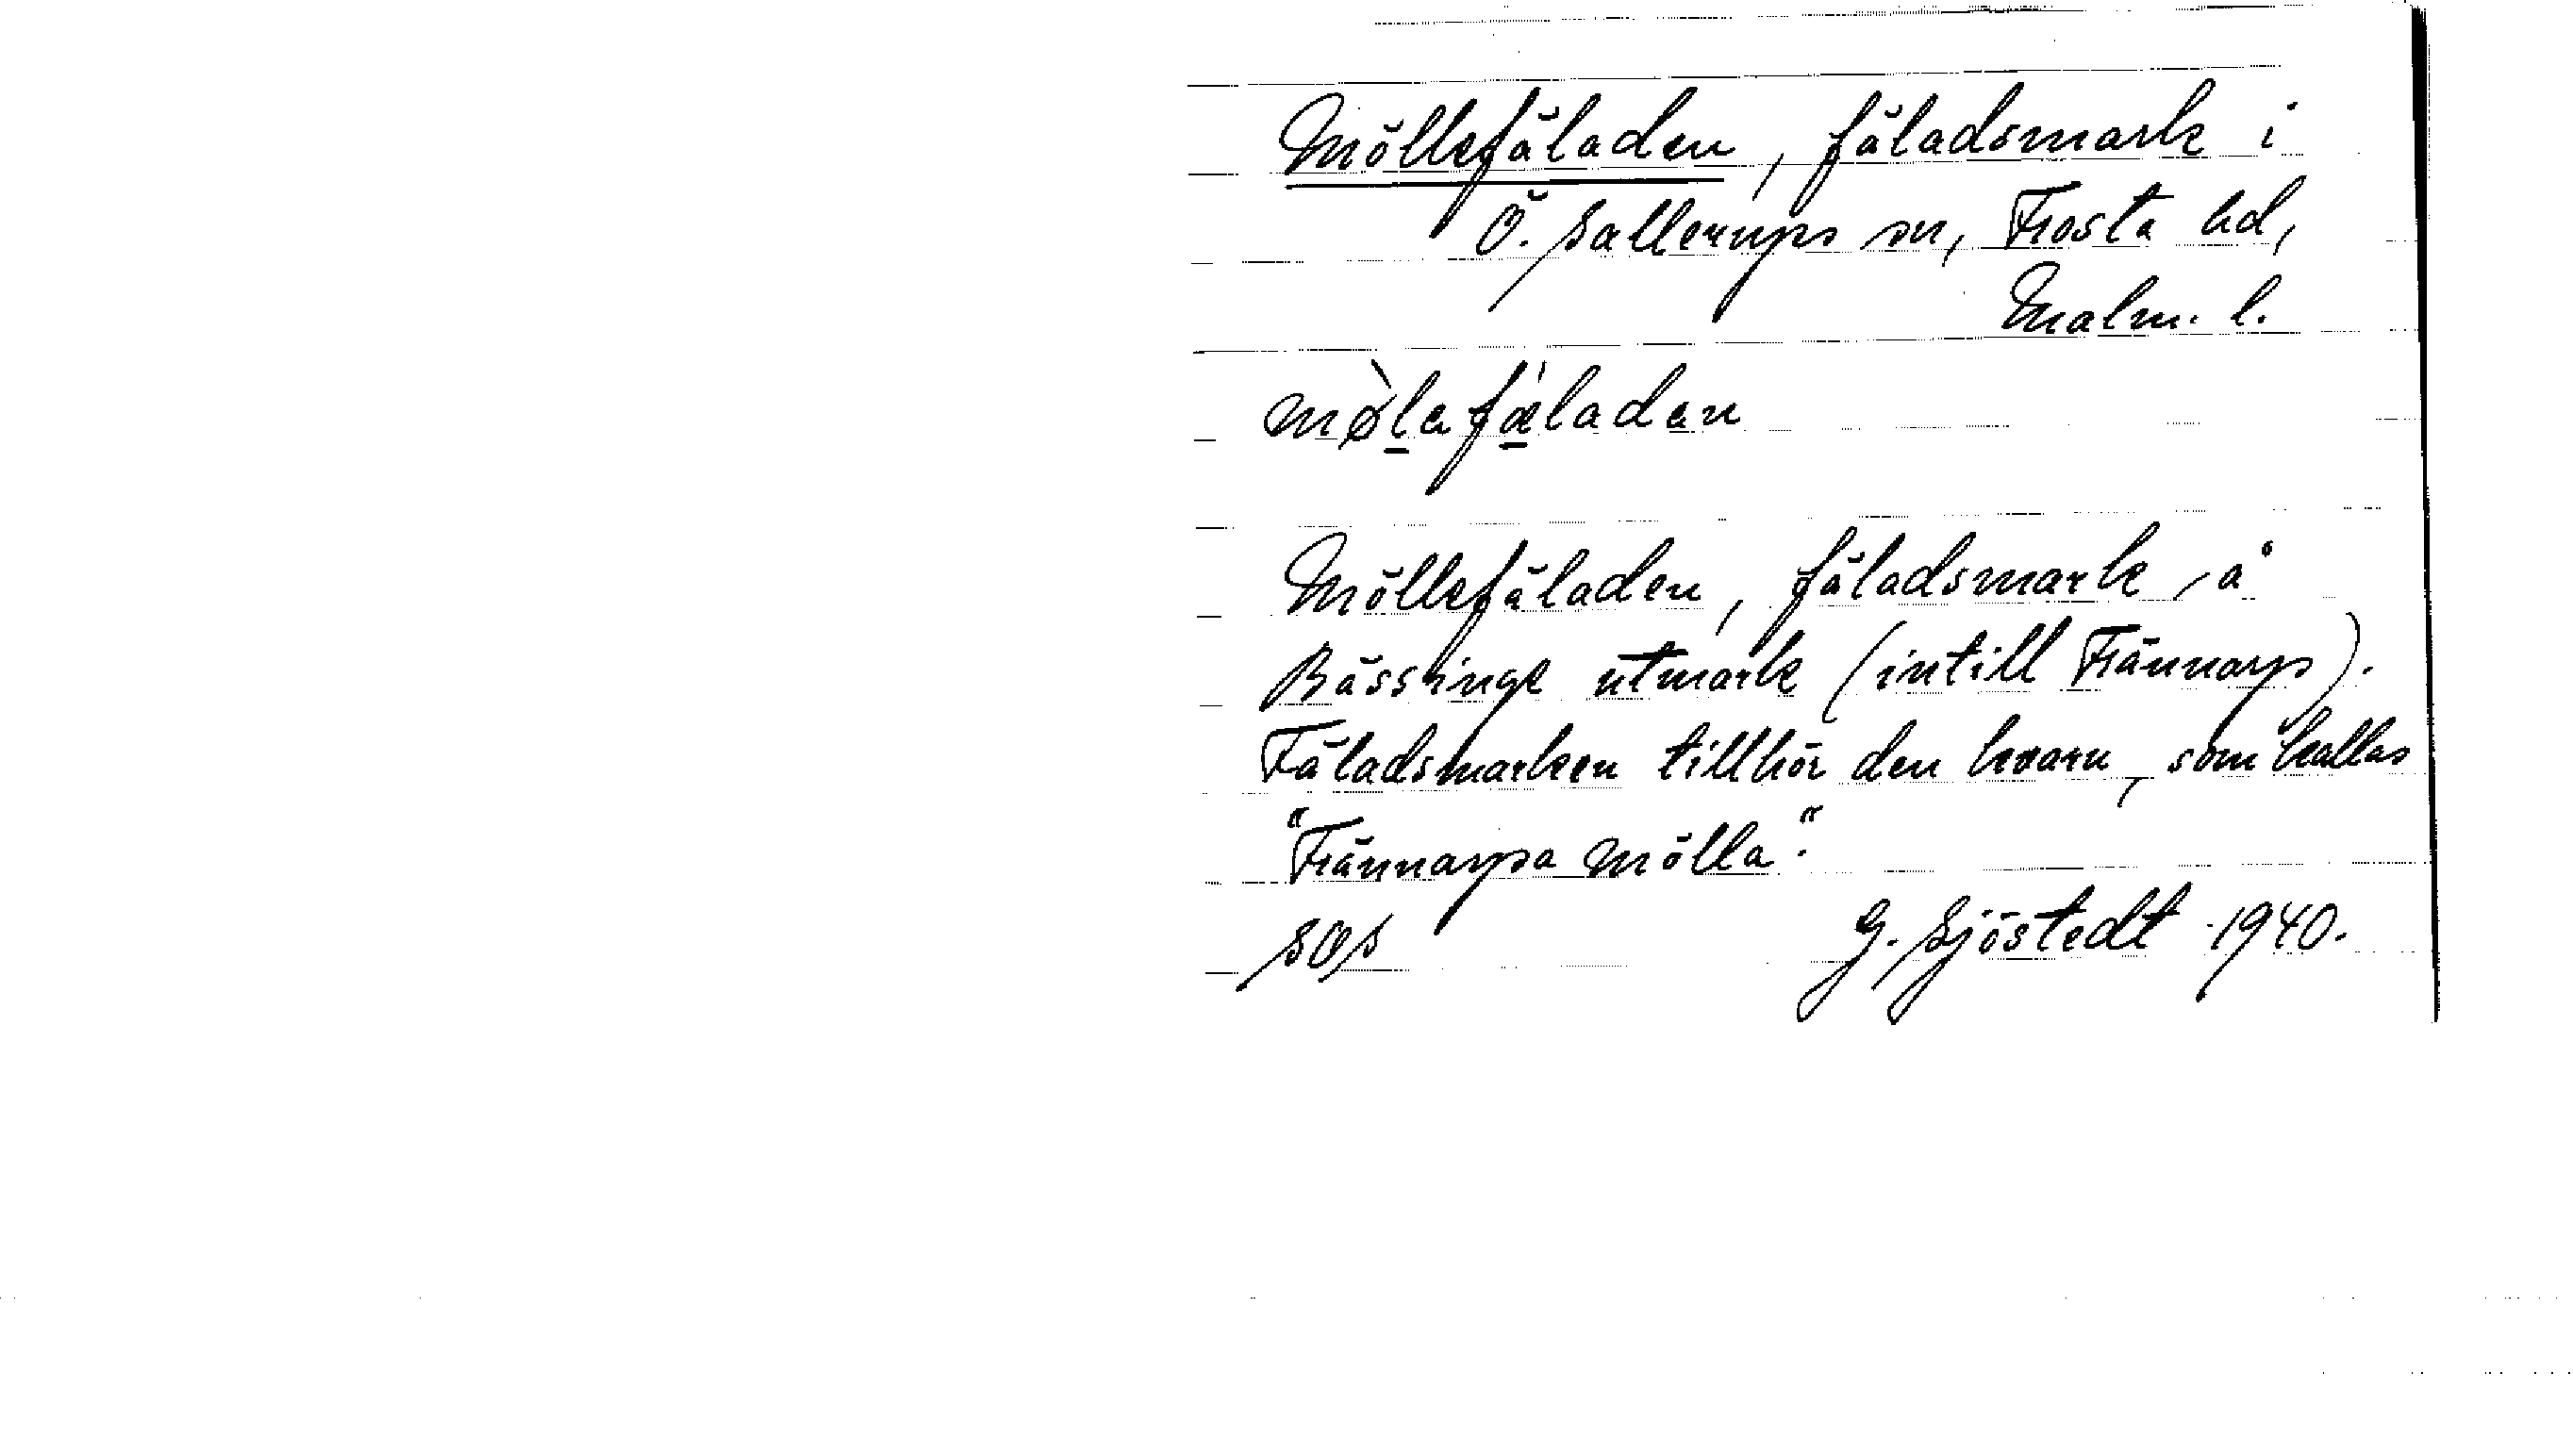 Möllefäladen, fäladsmark i
Ö. Sallerups sn, Frosta hd,
Malm. l.
mø̀lefæ̀laden
Möllefäladen, fäladsmark, å
Bässinge utmark (intill Frännarp).
Fäladsmarken tillhör den kvarn, som kallas
"Frännarpa mölla".
SOS G. Sjöstedt 1940.